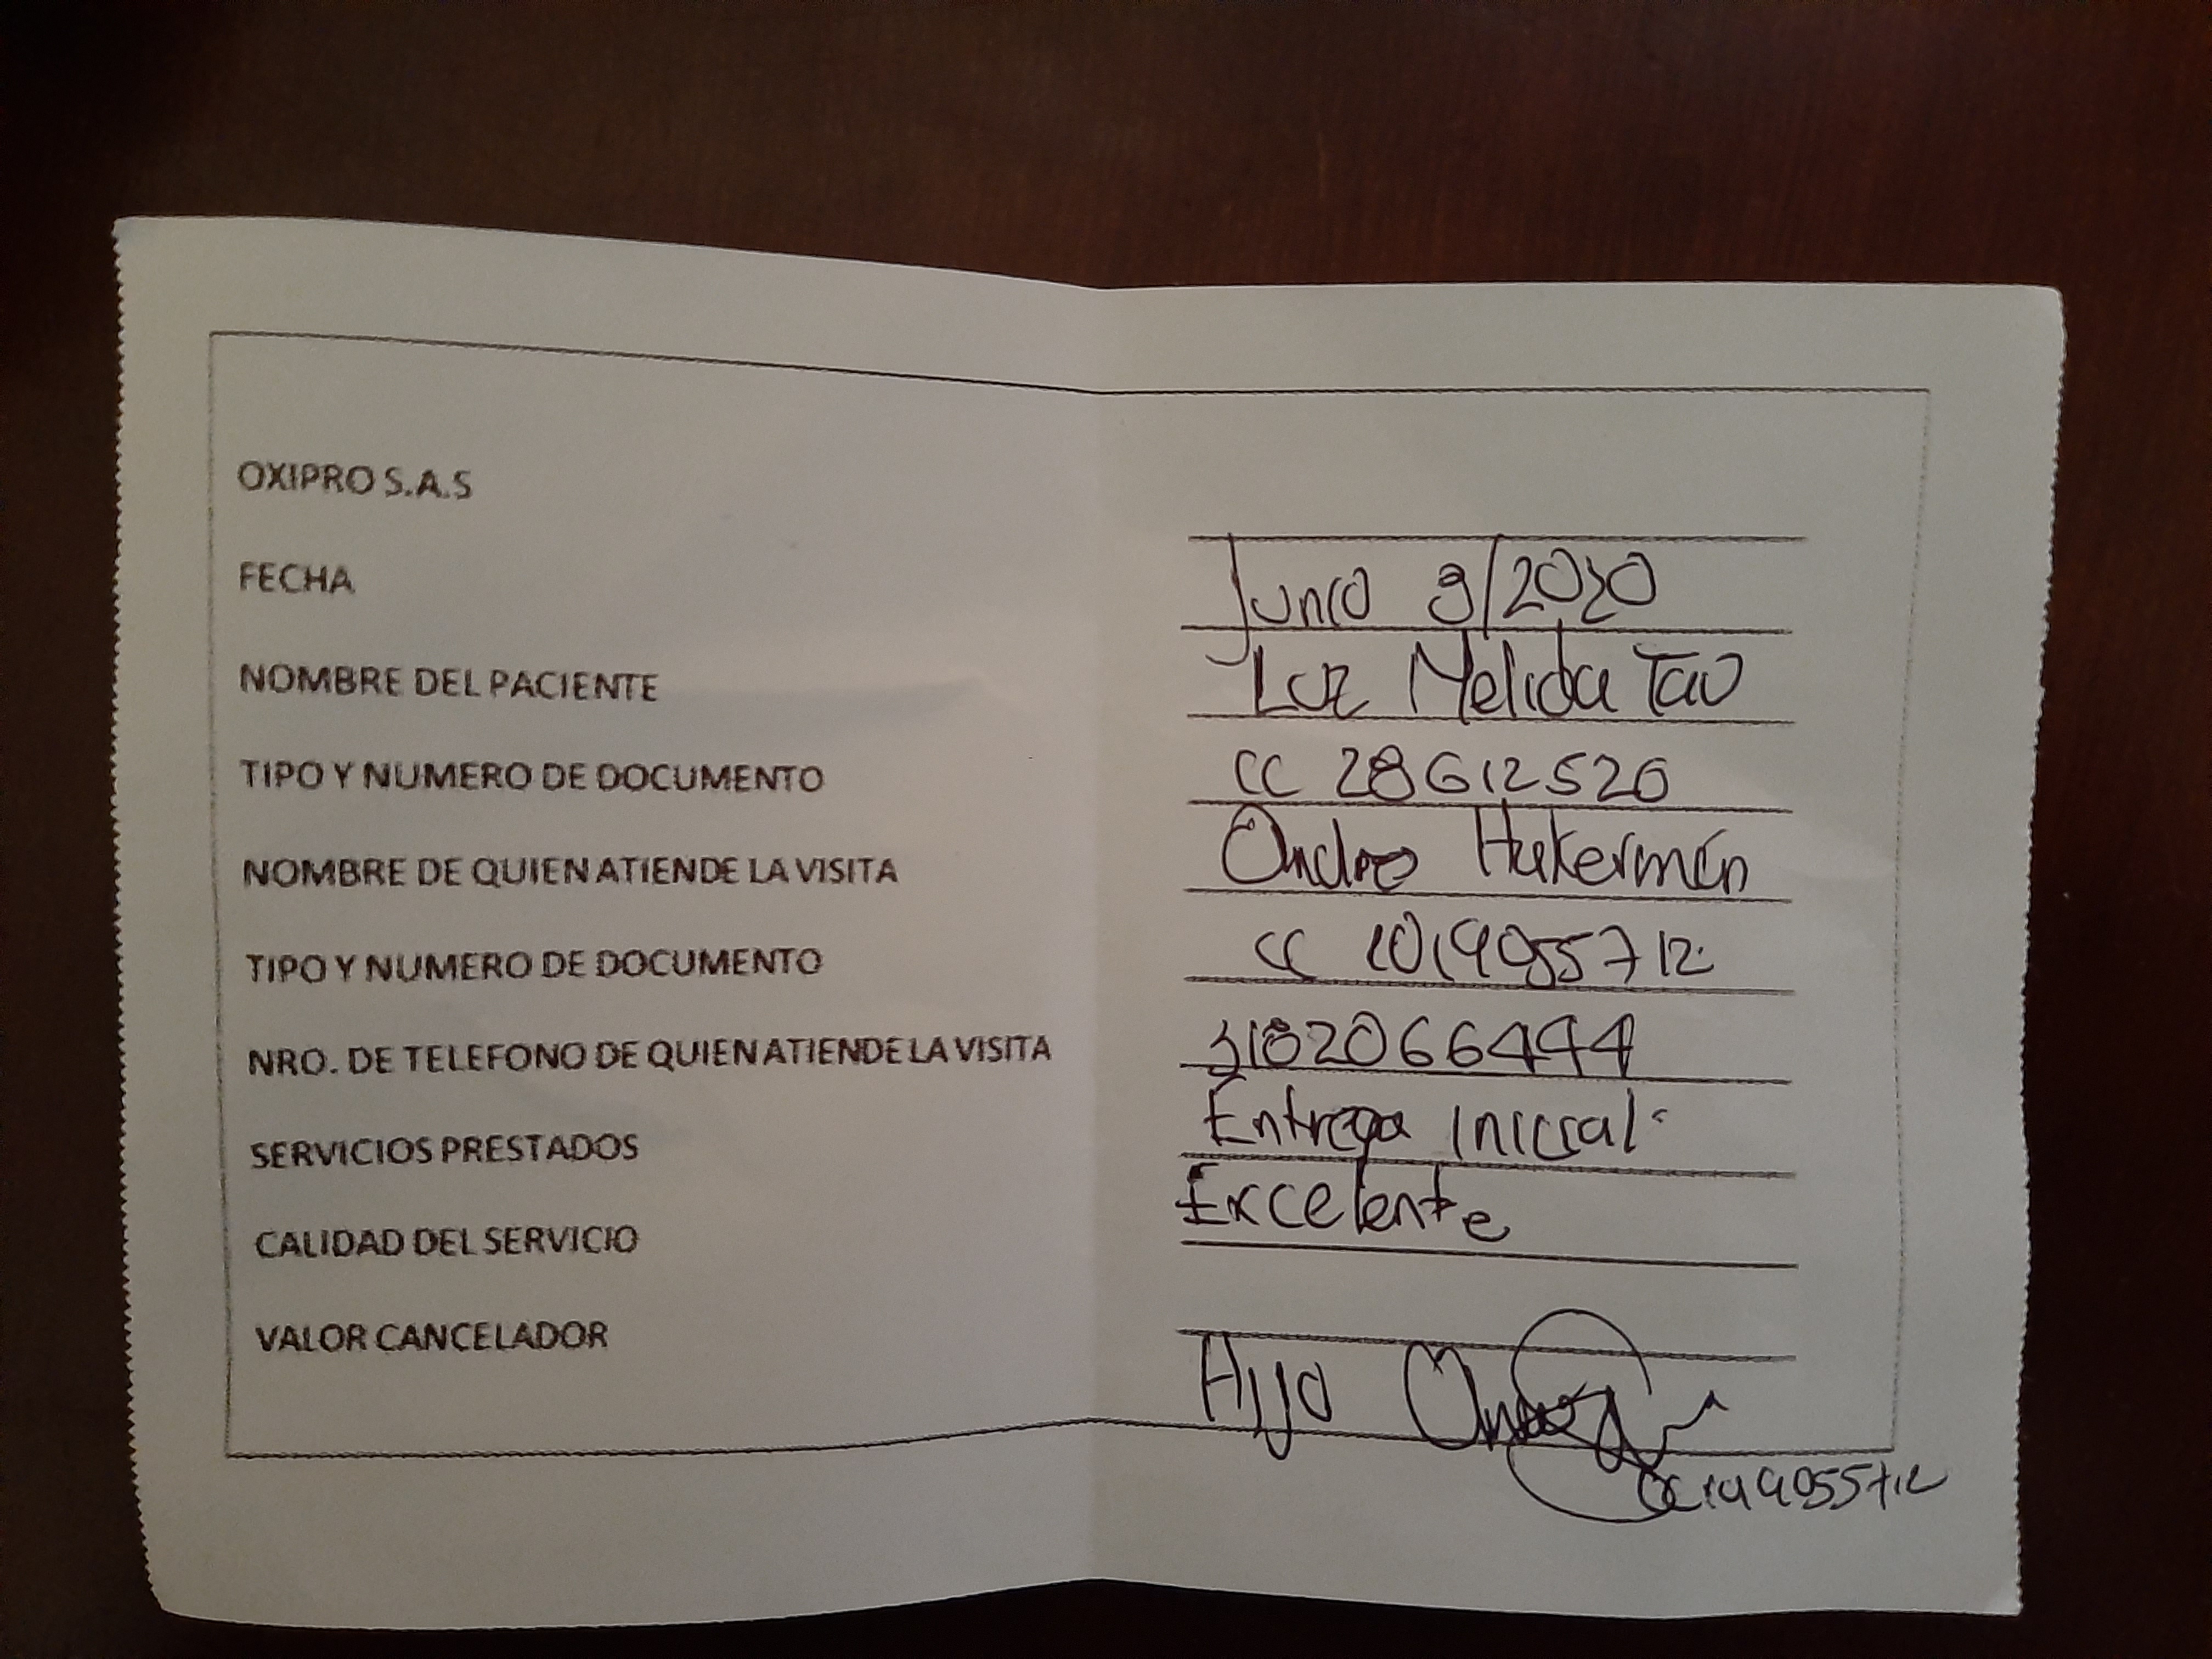 OXIPRO S.A.S
FECHA Junio 9/2020
NOMBRE DEL PACIENTE Luz Melida Tao
TIPO Y NUMERO DE DOCUMENTO CC 28612520
NOMBRE DE QUIEN ATIENDE LA VISITA
TIPO Y NUMERO DE DOCUMENTO CC 1019055712
NRO. DE TELEFONO DE QUIEN ATIENDE LA VISITA 3182066444
SERVICIOS PRESTADOS Entrega Inicial
CALIDAD DEL SERVICIO Excelente
VALOR CANCELADOR
Hijo